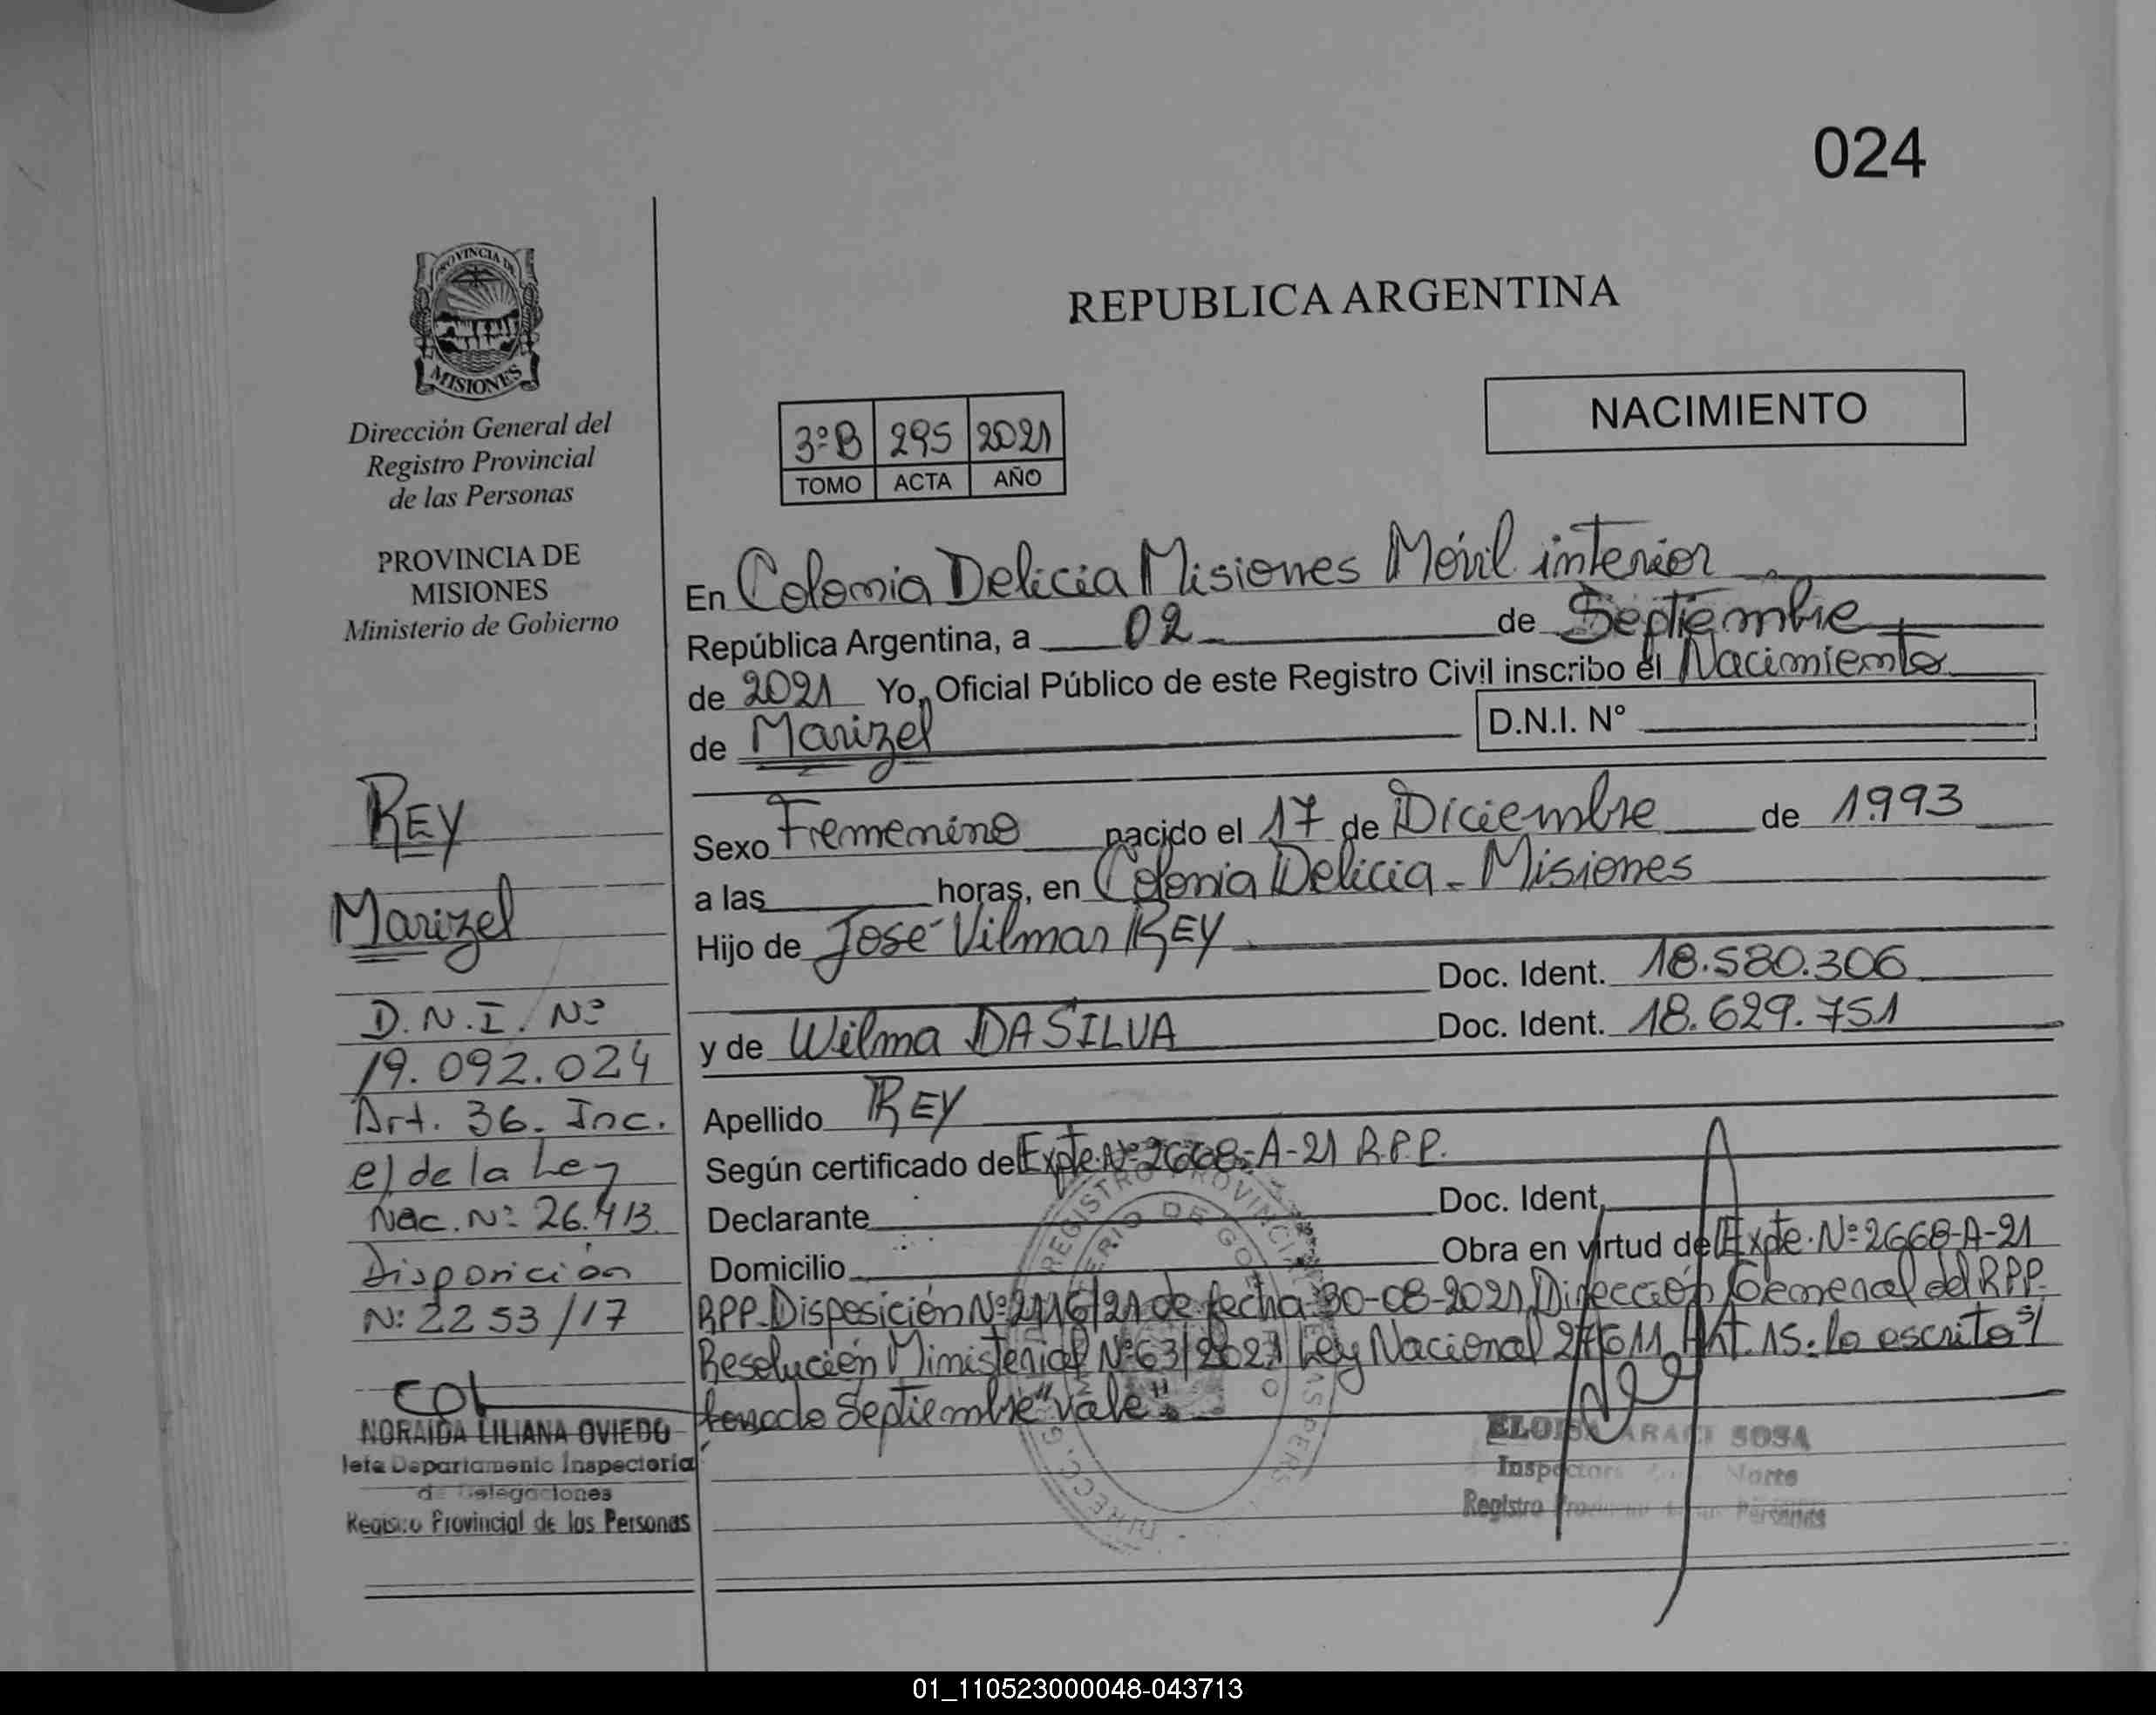 024
PROVINCIA DE
MISIONES
Dirección General del
Registro Provincial
de las Personas
PROVINCIA DE
MISIONES
Ministerio de Gobierno
REPUBLICA ARGENTINA
NACIMIENTO
3ºB 295 2021
TOMO ACTA AÑO
En Colonia Delicia Misiones Móvil interior
República Argentina, a 02 de Septiembre
de 2021 Yo, Oficial Público de este Registro Civil inscribo el Nacimiento
de Marizel D.N.I. N°
Sexo Femenino nacido el 17 de Diciembre de 1.993
a las horas, en Colonia Delicia - Misiones
Hijo de José Vilmar REY
Doc. Ident. 18.580.306
y de Wilma DA SILVA Doc. Ident. 18.629.751
Apellido REY
Según certificado de Expte. Nº 2668-A-21 R.P.P.
Declarante Doc. Ident.
Domicilio Obra en virtud del Expte. Nº 2668-A-21
RPP. Disposición Nº 2116/21 de fecha 30-08-2021 Dirección General del RPP.
Resolución Ministerial Nº 63/2021 Ley Nacional 27611 Art. 15. lo escrito s/
Septiembre "Vale".
REY
Marizel
D.N.I. Nº
19.092.024
Art. 36. Inc.
e) de la Ley
Nac. Nº 26.413.
Disposición
Nº 2253/17
NORAIDA LILIANA OVIEDO
Jefa Departamento Inspectoria
de Delegaciones
Registro Provincial de las Personas
ELOISA ARACI SOSA
Inspectora Norte
Registro Personas
01_110523000048-043713